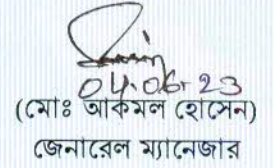 04.06.23
(মোঃ আকমল হোসেন)
জেনারেল ম্যানেজার